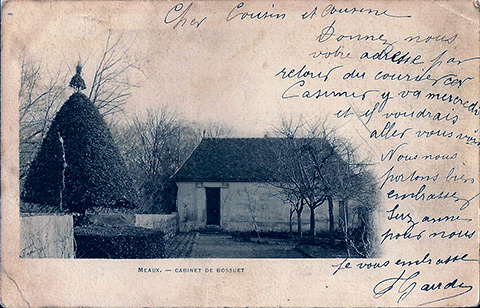 Cher Cousin et Cousine
Donnez nous
votre adresse par
retour du courrier car
Casimir y va mercredi
et il voudrais
aller vous voir
Nous nous
portons bien
embrassez
Suzanne
pour nous
je vous embrasse
MEAUX. — CABINET DE BOSSUET